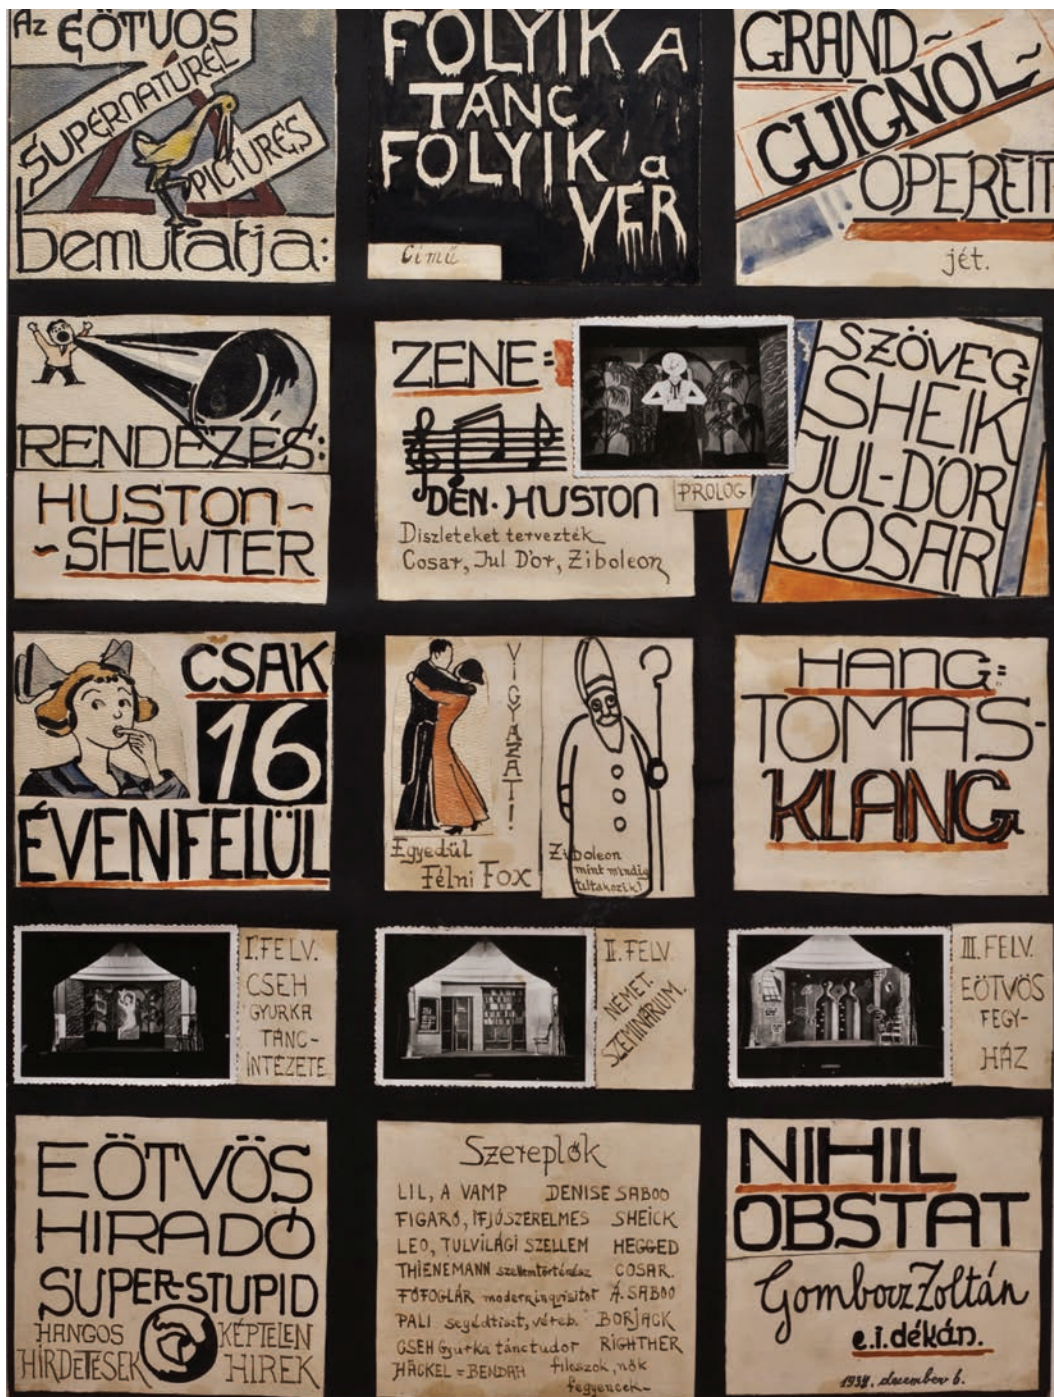 Az EÖTVÖS
SUPERNATUREL
PICTURES
bemutatja:
FOLYIK A
TÁNC
FOLYIK a
VÉR
Című
GRAND-
GUIGNOL-
OPERETT
jét.
RENDEZÉS:
HUSTON-
-SHEWTER
ZENE:
DEN. HUSTON
Diszleteket tervezték
Cosar, Jul D'or, Ziboleon
PROLOG
SZÖVEG
SHEIK
JUL-D'OR
COSAR
CSAK
16
ÉVENFELÜL
VIGYÁZAT!
Egyedül
Félni FOX
Ziboleon
mint mindig
tiltakozik!
HANG:
TOMAS-
KLANG
I. FELV.
CSEH
GYURKA
TÁNC-
INTÉZETE
II. FELV.
NÉMET.
SZEMINÁRIUM.
III. FELV.
EÖTVÖS
FEGY-
HÁZ
EÖTVÖS
HIRADÓ
SUPER-STUPID
HANGOS KÉPTELEN
HIRDETÉSEK HIREK
Szereplők
LIL, A VAMP DENISE SABOO
FIGARÓ, IFJÚSZERELMES SHEICK
LEO, TULVILÁGI SZELLEM HEGGED
THIENEMANN szellemtörténész COSAR.
FŐFOGLÁR moderninqvisitor Á. SABOO
PALI segédtiszt, véreb. BORJACK
CSEH Gyurka tánctudor RIGHTHER
HÄCKEL = BENDAH filoszok, nők
fegyencek-
NIHIL
OBSTAT
Gombocz Zoltán
e.i. dékán.
1934. december 6.